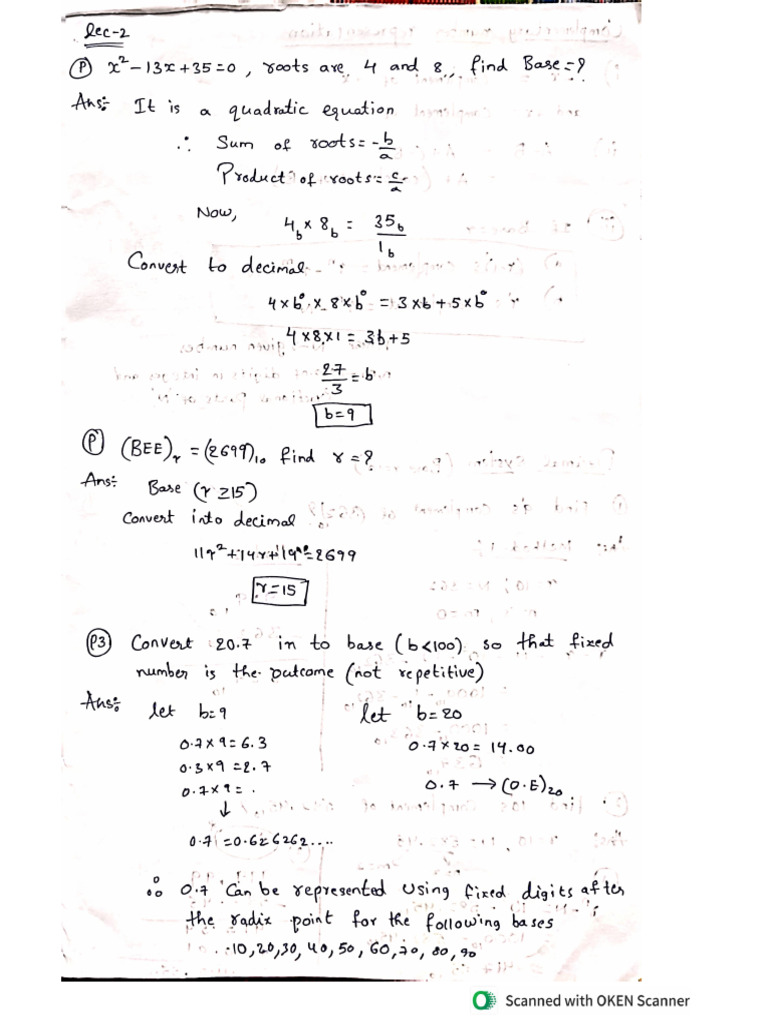 Lec-2
(P) x² - 13x + 35 = 0, roots are 4 and 8, find Base = ?
Ans: It is a quadratic equation
∴ Sum of roots = -b/a
Product of roots = c/a
Now, 4_b × 8_b = 35_b / 1_b
Convert to decimal
4 × b⁰ × 8 × b⁰ = 3 × b + 5 × b⁰
4 × 8 × 1 = 3b + 5
27/3 = b
b = 9
(P) (BEE)_r = (2699)_10 find r = ?
Ans: Base (r ≥ 15)
Convert into decimal
11r² + 14r + 14r⁰ = 2699
r = 15
(P3) Convert 20.7 in to base (b < 100) so that fixed
number is the outcome (not repetitive)
Ans: let b = 9 let b = 20
0.7 × 9 = 6.3 0.7 × 20 = 14.00
0.3 × 9 = 2.7
0.7 × 9 = . 0.7 → (0.E)_20
↓
0.7 = 0.626262....
∴ 0.7 Can be represented using fixed digits after
the radix point for the following bases
10, 20, 30, 40, 50, 60, 70, 80, 90
Scanned with OKEN Scanner